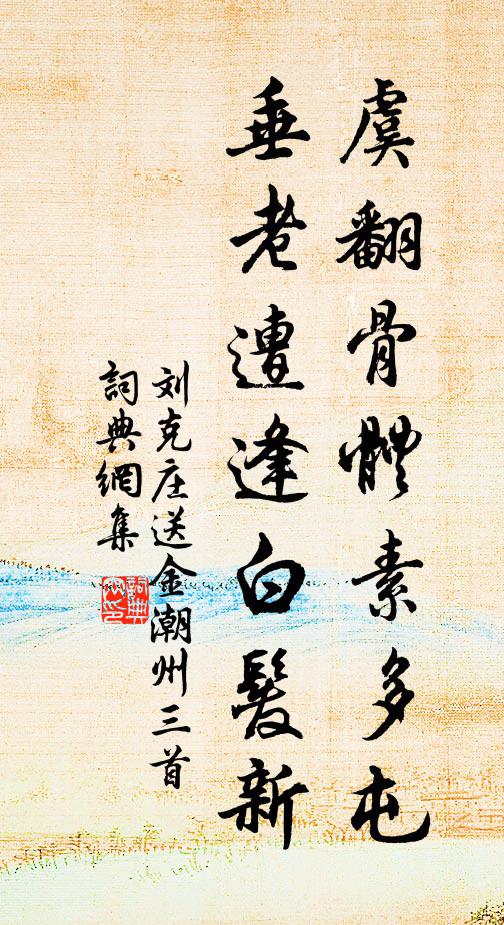 虞翻骨體素多屯
垂老遭逢白髮新
刘克庄送金潮州三首
詞典網集